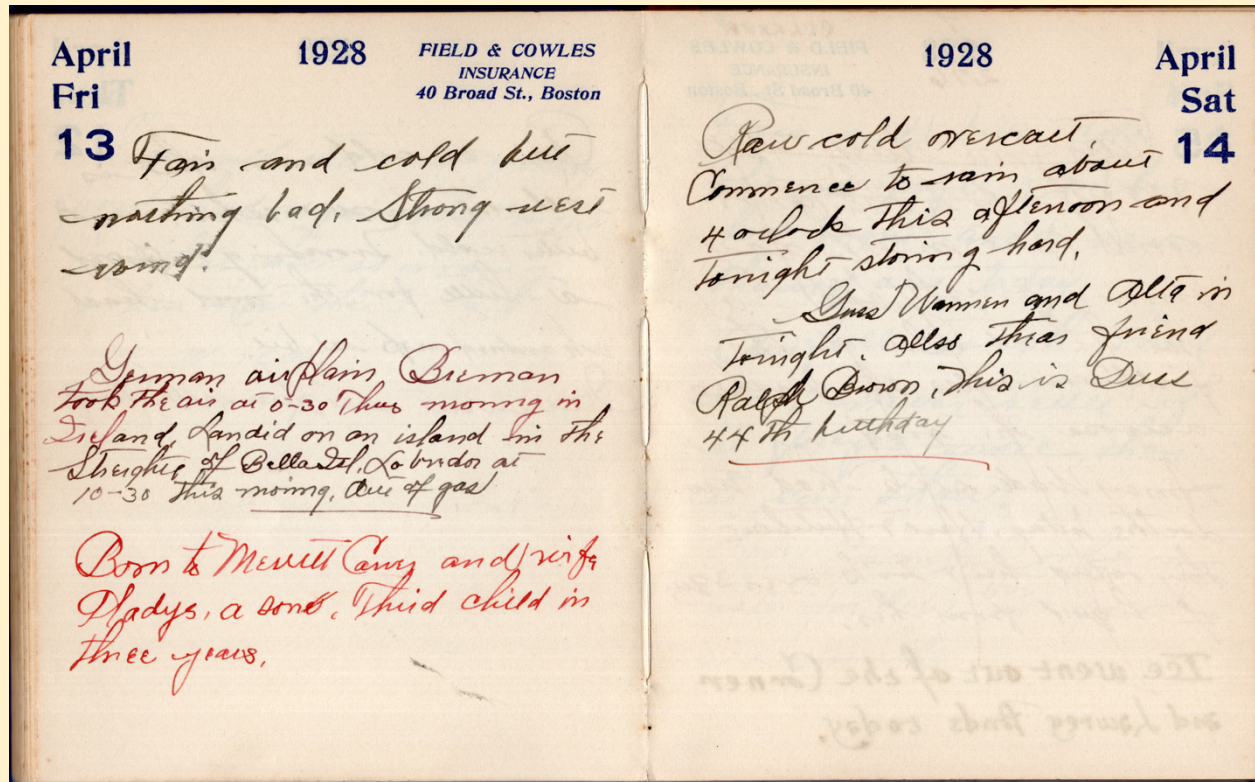 April
Fri
13
1928
FIELD & COWLES
INSURANCE
40 Broad St., Boston
Fair and cold but
nothing bad. Strong west
wind.
German airplain Breman
took the air at 0-30 this morning in
Ireland, Landid on an island in the
Streights of Bella Isl, Labrador at
10-30 this morning, Out of gas
Born to Merritt and wife
Gladys, a son. Third child in
three years.
1928
April
Sat
14
Raw cold overcast
Commence to rain about
4 oclock this afternoon and
tonight storing hard.
and Alta in
tonight. Allso thear friend
Ralph Brown, This is
44th birthday